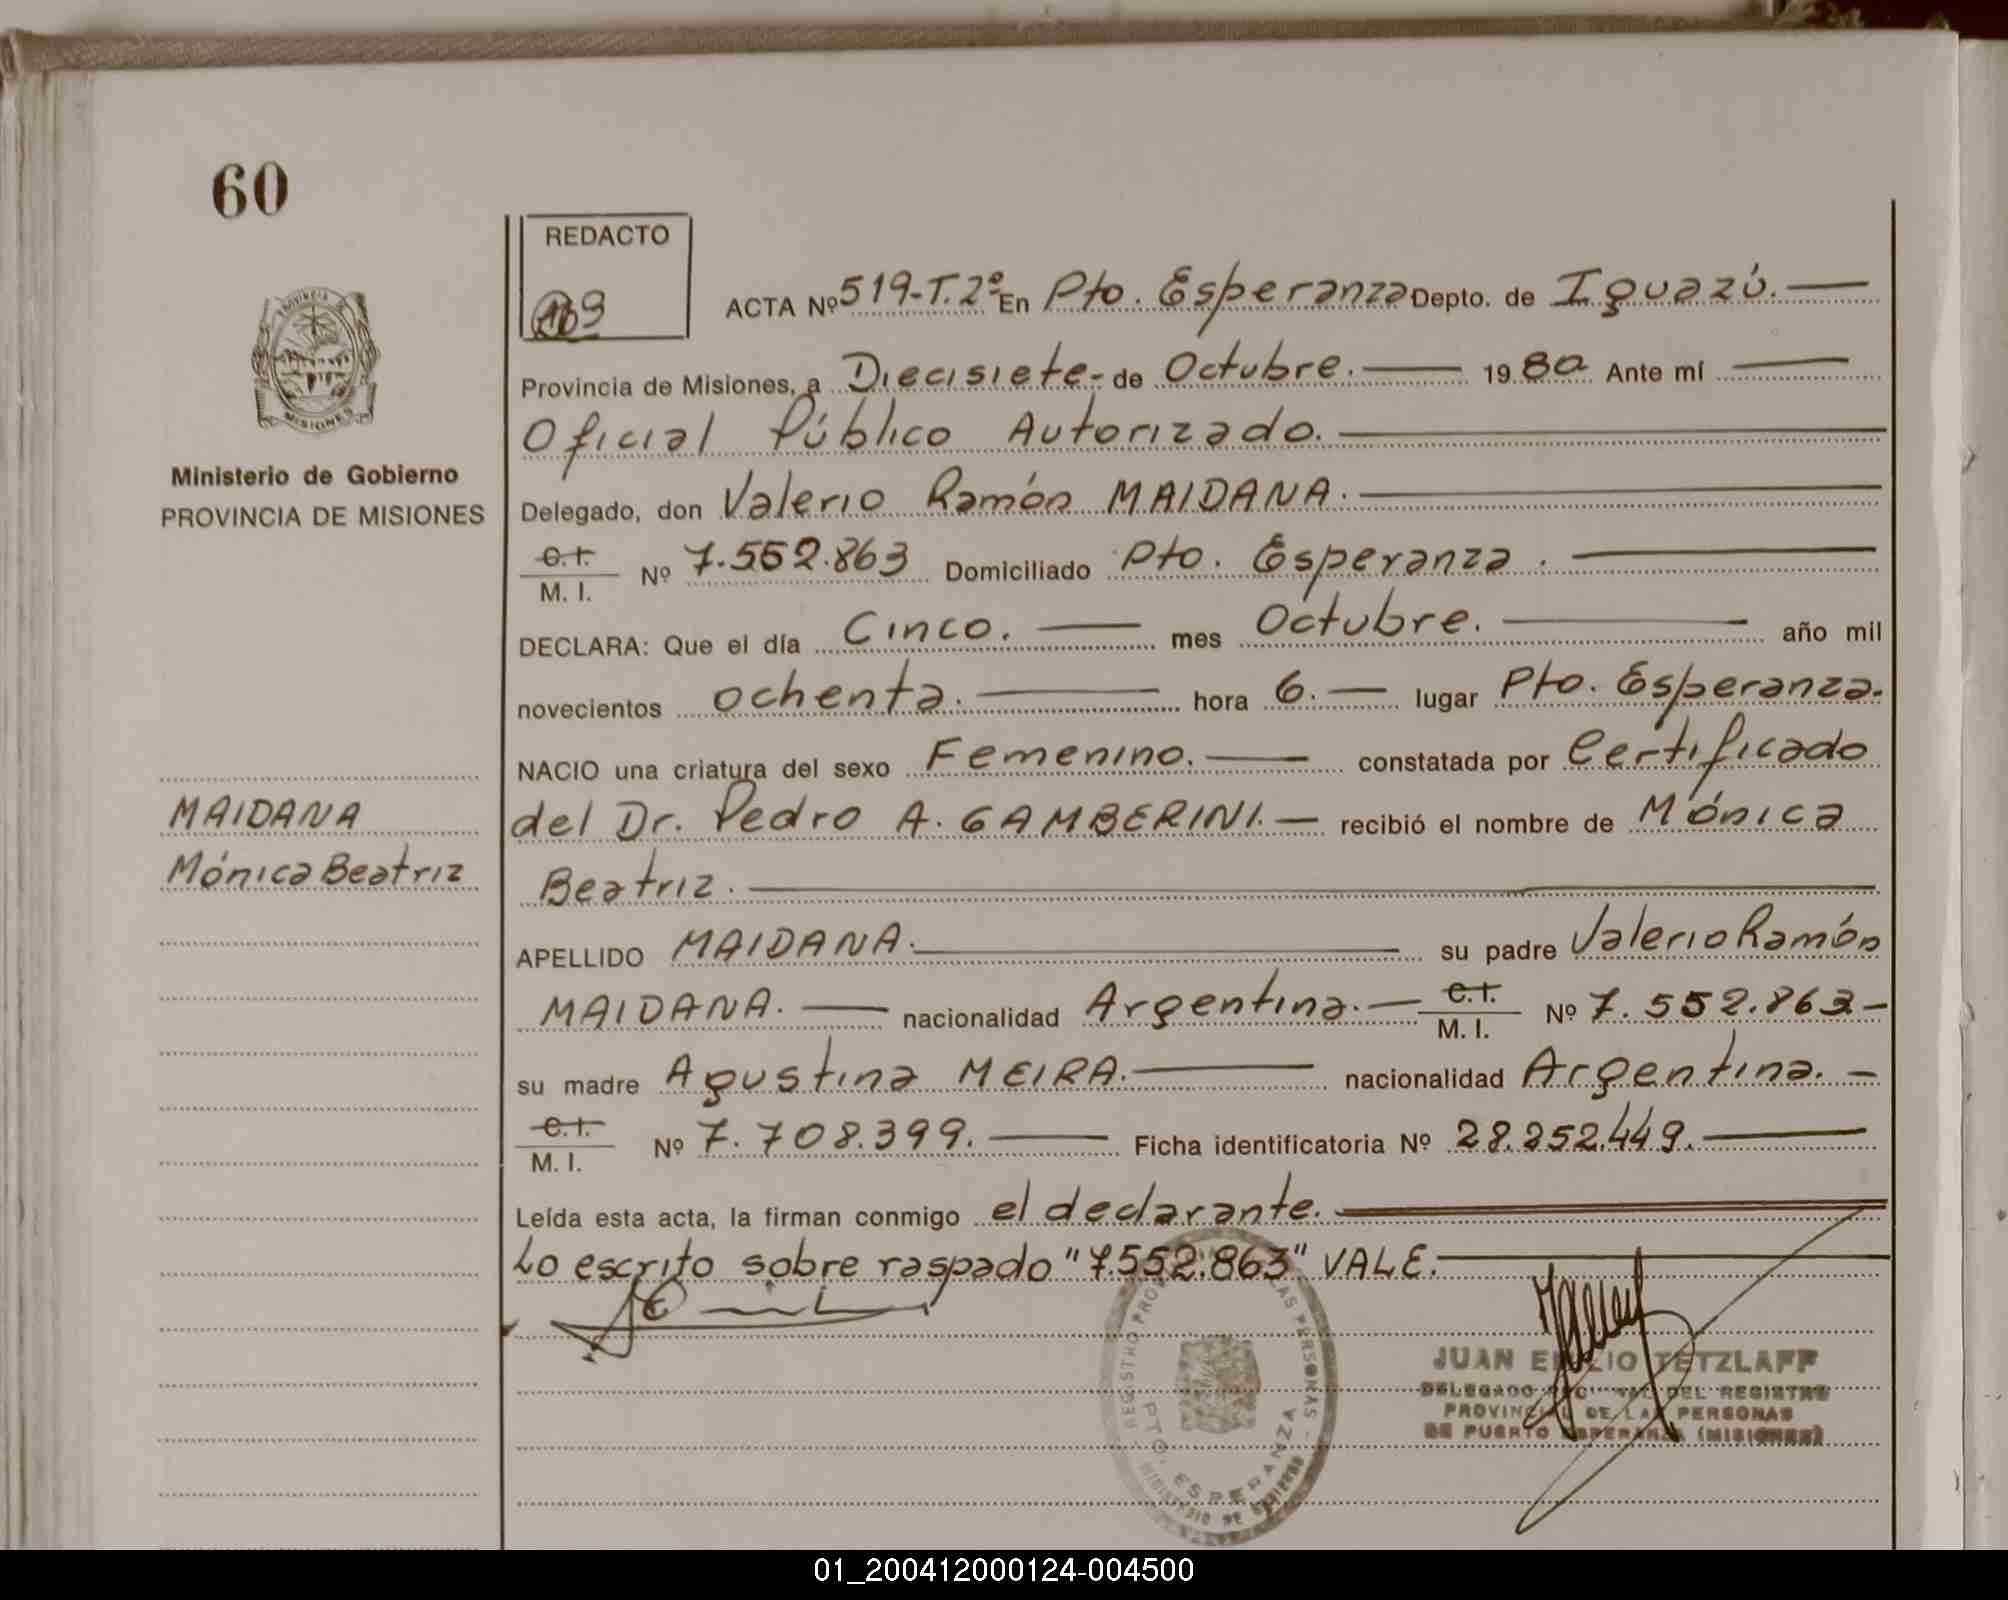 60
REDACTO
ACTA Nº 519-T.2º En Pto. Esperanza Depto. de Iguazú.
Provincia de Misiones, a Diecisiete- de Octubre. 1980 Ante mí
Oficial Público Autorizado.
Ministerio de Gobierno
PROVINCIA DE MISIONES
Delegado, don Valerio Ramón MAIDANA.
C.I.
M. I. Nº 7.552.863 Domiciliado Pto. Esperanza.
DECLARA: Que el día Cinco. mes Octubre. año mil
novecientos ochenta. hora 6. lugar Pto. Esperanza.
NACIO una criatura del sexo Femenino. constatada por Certificado
del Dr. Pedro A. GAMBERINI. recibió el nombre de Mónica
Beatriz.
MAIDANA
Mónica Beatriz
APELLIDO MAIDANA. su padre Valerio Ramón
MAIDANA. nacionalidad Argentina. C.I. M. I. Nº 7.552.863-
su madre Agustina MEIRA. nacionalidad Argentina.
C.I.
M. I. Nº 7.708.399. Ficha identificatoria Nº 28.252.449.
Leída esta acta, la firman conmigo el declarante.
Lo escrito sobre raspado "7.552.863" VALE.
PTO. ESPERANZA
JUAN EMILIO TETZLAFF
DELEGADO REGIONAL DEL REGISTRO
PROVINCIAL DE LAS PERSONAS
DE PUERTO ESPERANZA (MISIONES)
01_200412000124-004500